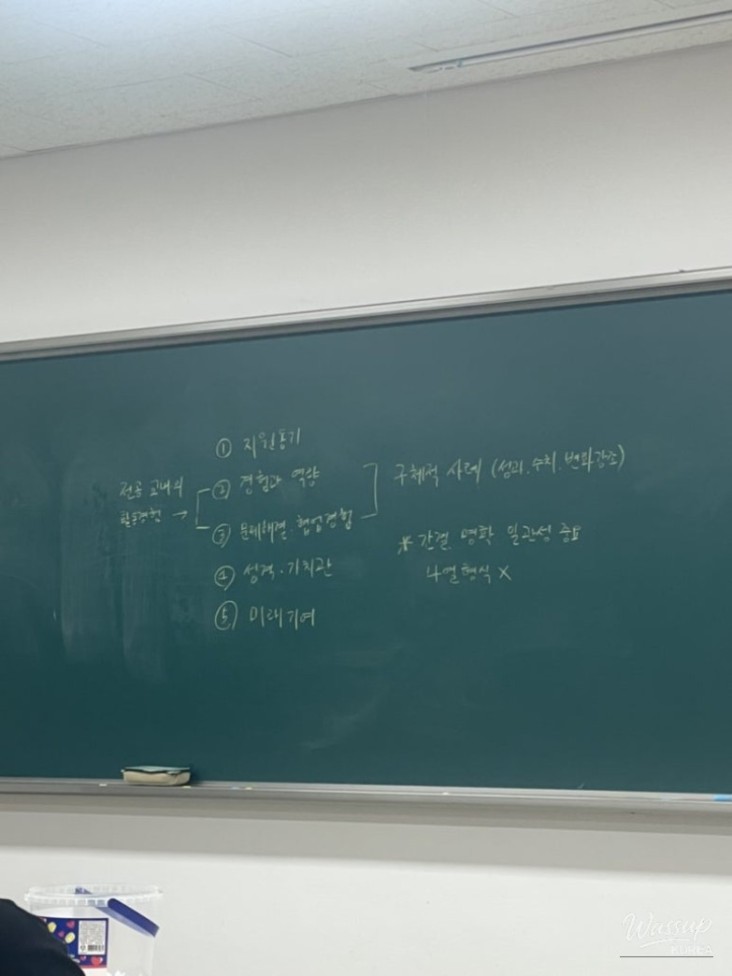 ① 지원동기
전공 교내외
활동경험 →
② 경험과 역량
③ 문제해결 협업경험
구체적 사례 (성과, 수치, 변화강조)
④ 성격·가치관
⑤ 미래기여
※ 간결, 명확 일관성 중요
나열형식 X
Wassup